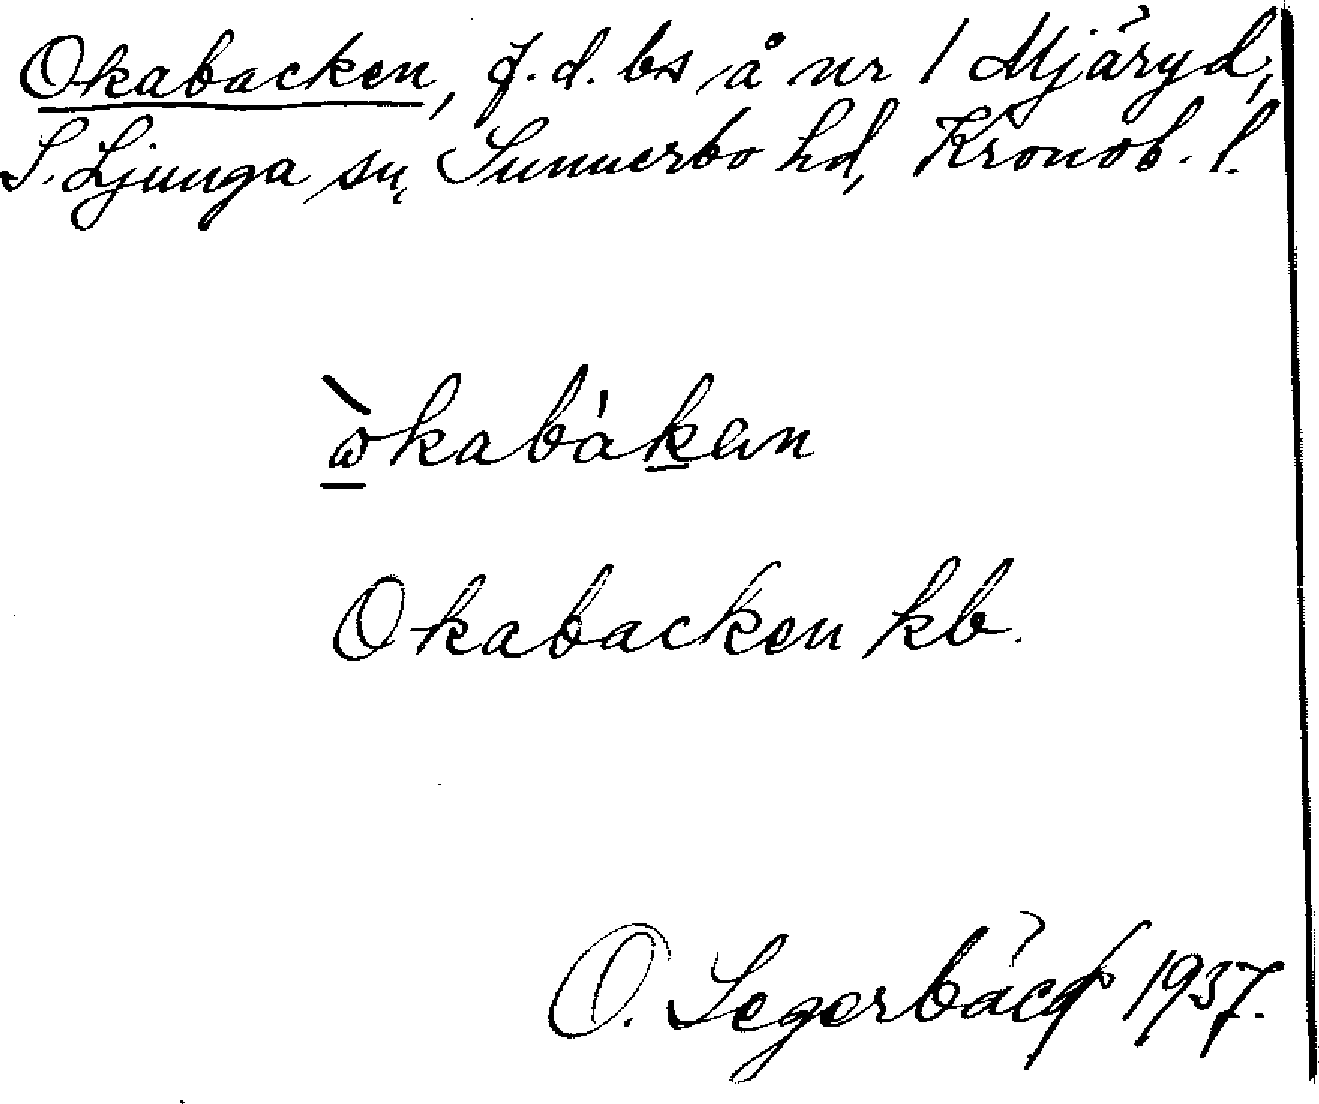 Okabacken, f.d. bs å nr 1 Mjäryd,
S. Ljunga sn, Sunnerbo hd, Kronob. l.
ὼkabàkɐn
Okabacken kb.
O. Segerbäck 1937.